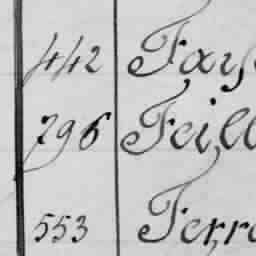 442 Fay
796 Feill
553 Ferr